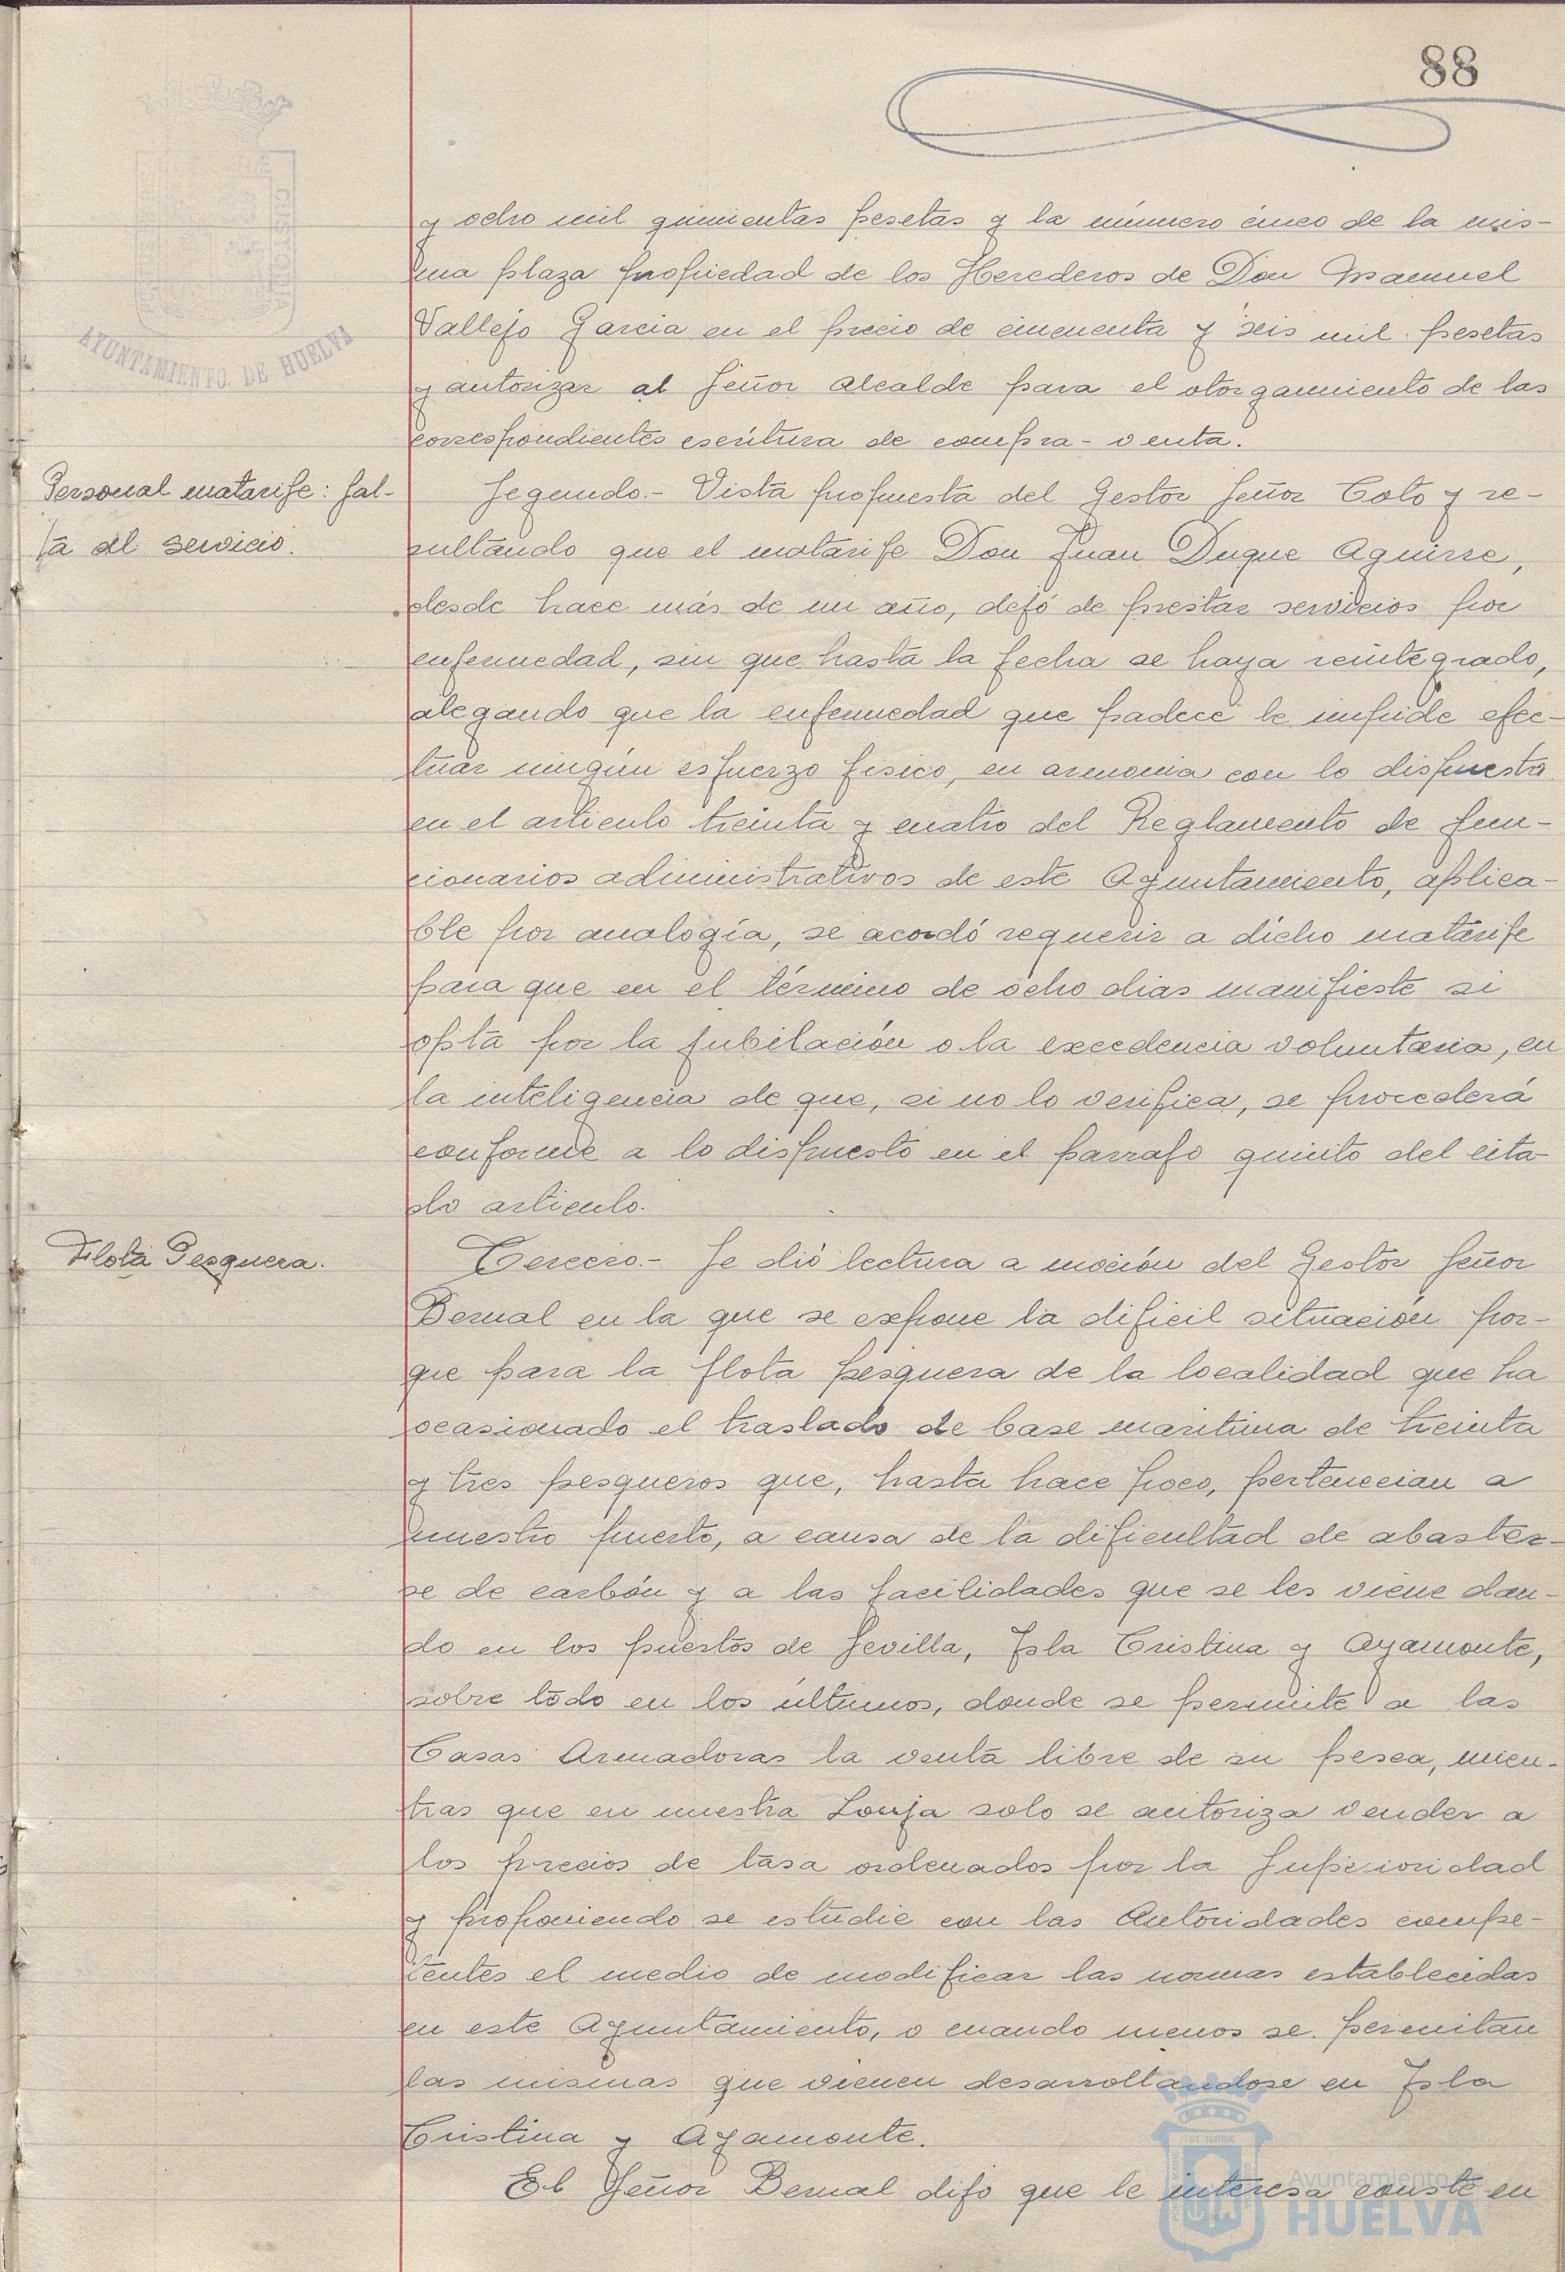 88
AYUNTAMIENTO DE HUELVA
y ocho mil quinientas pesetas y la número cinco de la mis-
ma plaza propiedad de los Herederos de Don Manuel
Vallejo Garcia en el precio de cincuenta y seis mil pesetas
y autorizar al Señor Alcalde para el otorgamiento de las
correspondientes escritura de compra-venta.
Personal matarife: fal-
ta al servicio.
Segundo.- Vista propuesta del Gestor Señor Coto y re-
sultando que el matarife Don Juan Duque Aguirre,
desde hace más de un año, dejó de prestar servicios por
enfermedad, sin que hasta la fecha se haya reintegrado,
alegando que la enfermedad que padece le impide efec-
tuar ningún esfuerzo fisico, en armonia con lo dispuesto
en el articulo treinta y cuatro del Reglamento de fun-
cionarios administrativos de este Ayuntamiento, aplica-
ble por analogía, se acordó requerir a dicho matarife
para que en el término de ocho dias manifieste si
opta por la jubilación o la excedencia voluntaria, en
la inteligencia de que, si no lo verifica, se procederá
conforme a lo dispuesto en el parrafo quinto del cita-
do articulo.
Flota Pesquera.
Tercero.- Se dió lectura a moción del Gestor Señor
Bernal en la que se expone la dificil situación por-
que para la flota pesquera de la localidad que ha
ocasionado el traslado de base maritima de treinta
y tres pesqueros que, hasta hace poco, pertenecian a
nuestro puerto, a causa de la dificultad de abaster-
se de carbón y a las facilidades que se les viene dan-
do en los puertos de Sevilla, Isla Cristina y Ayamonte,
sobre todo en los últimos, donde se permite a las
Casas Armadoras la venta libre de su pesca, mien-
tras que en nuestra Lonja solo se autoriza vender a
los precios de tasa ordenados por la Superioridad
y proponiendo se estudie con las Autoridades compe-
tentes el medio de modificar las normas establecidas
en este Ayuntamiento, o cuando menos se permitan
las mismas que vienen desarrollandose en Isla
Cristina y Ayamonte.
El Señor Bernal dijo que le interesa conste en
Ayuntamiento
HUELVA